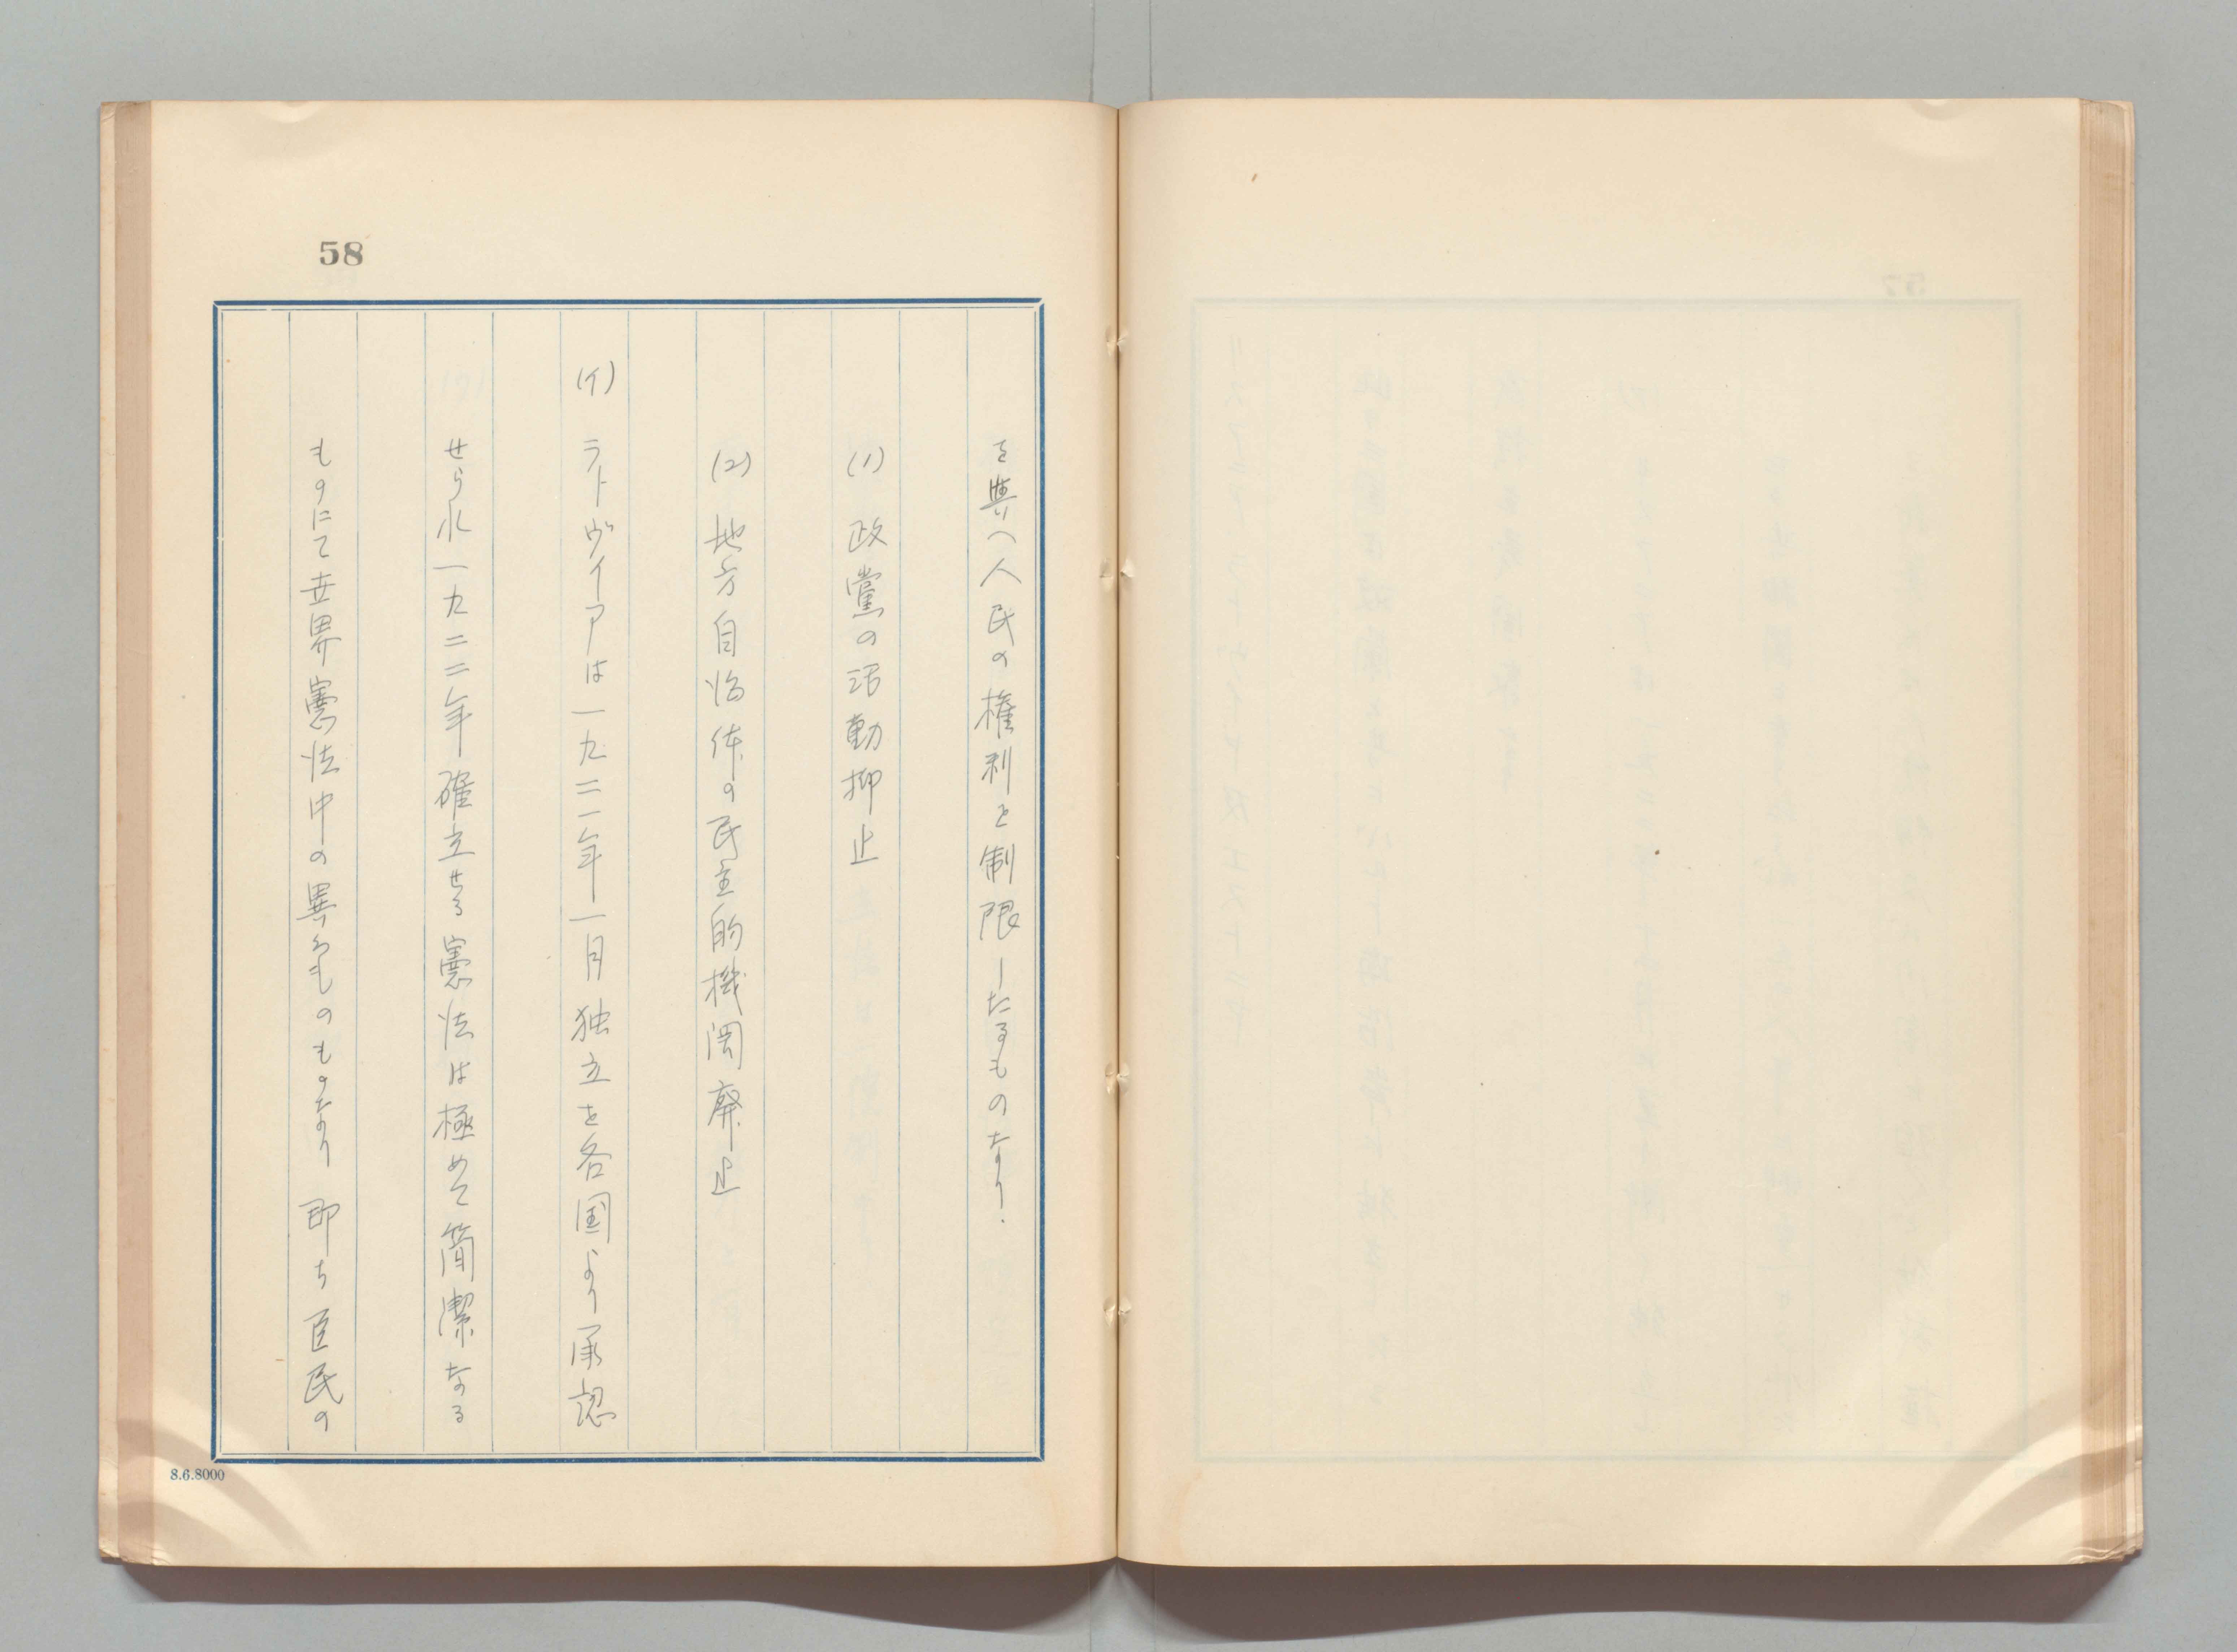 58
を與へ人民の権利を制限したるものなり.
(1) 政黨の活動抑止
(2) 地方自治体の民主的機関廃止
(イ) ラトヴイアは一九二一年一月独立を各国より承認
せられ一九二二年確立せる憲法は極めて簡潔なる
ものにて世界憲法中の異るものものなり 即ち臣民の
8.6.8000